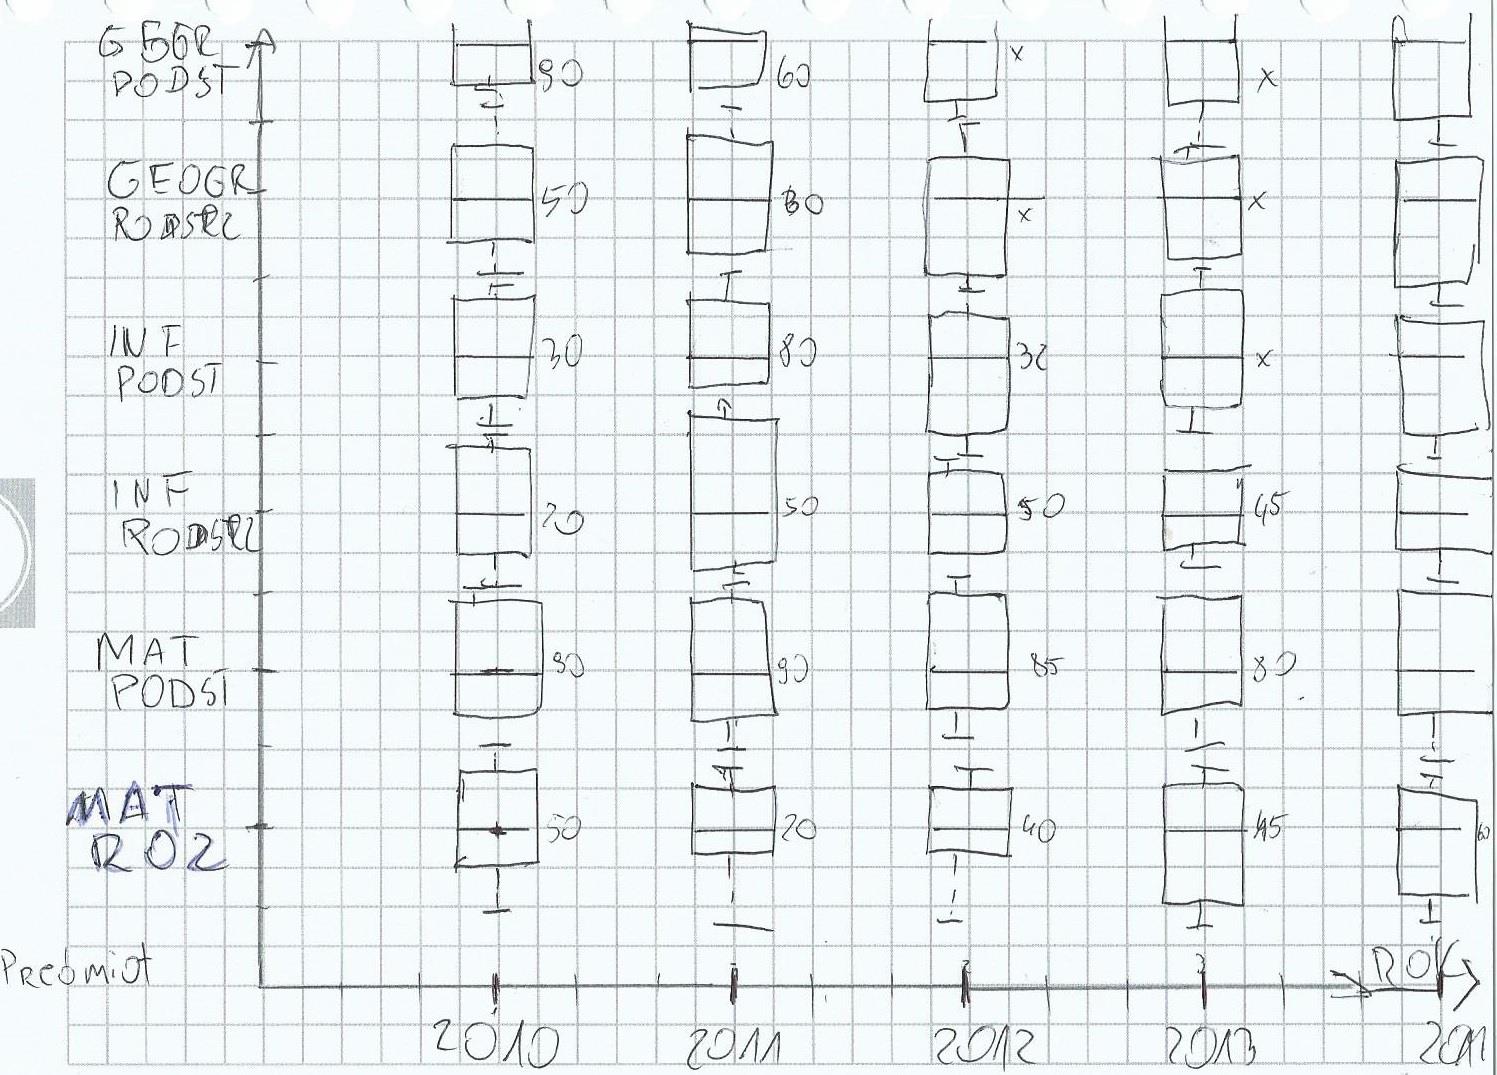 GEOGR
PODST 90 60 x x
GEOGR
ROZSRZ 50 80 x x
INF
PODST 30 80 32 x
INF
ROZSRZ 20 50 50 45
MAT
PODST 90 90 85 80
MAT
ROZ 50 20 40 45 60
Predmiot ROK
2010 2011 2012 2013 2011